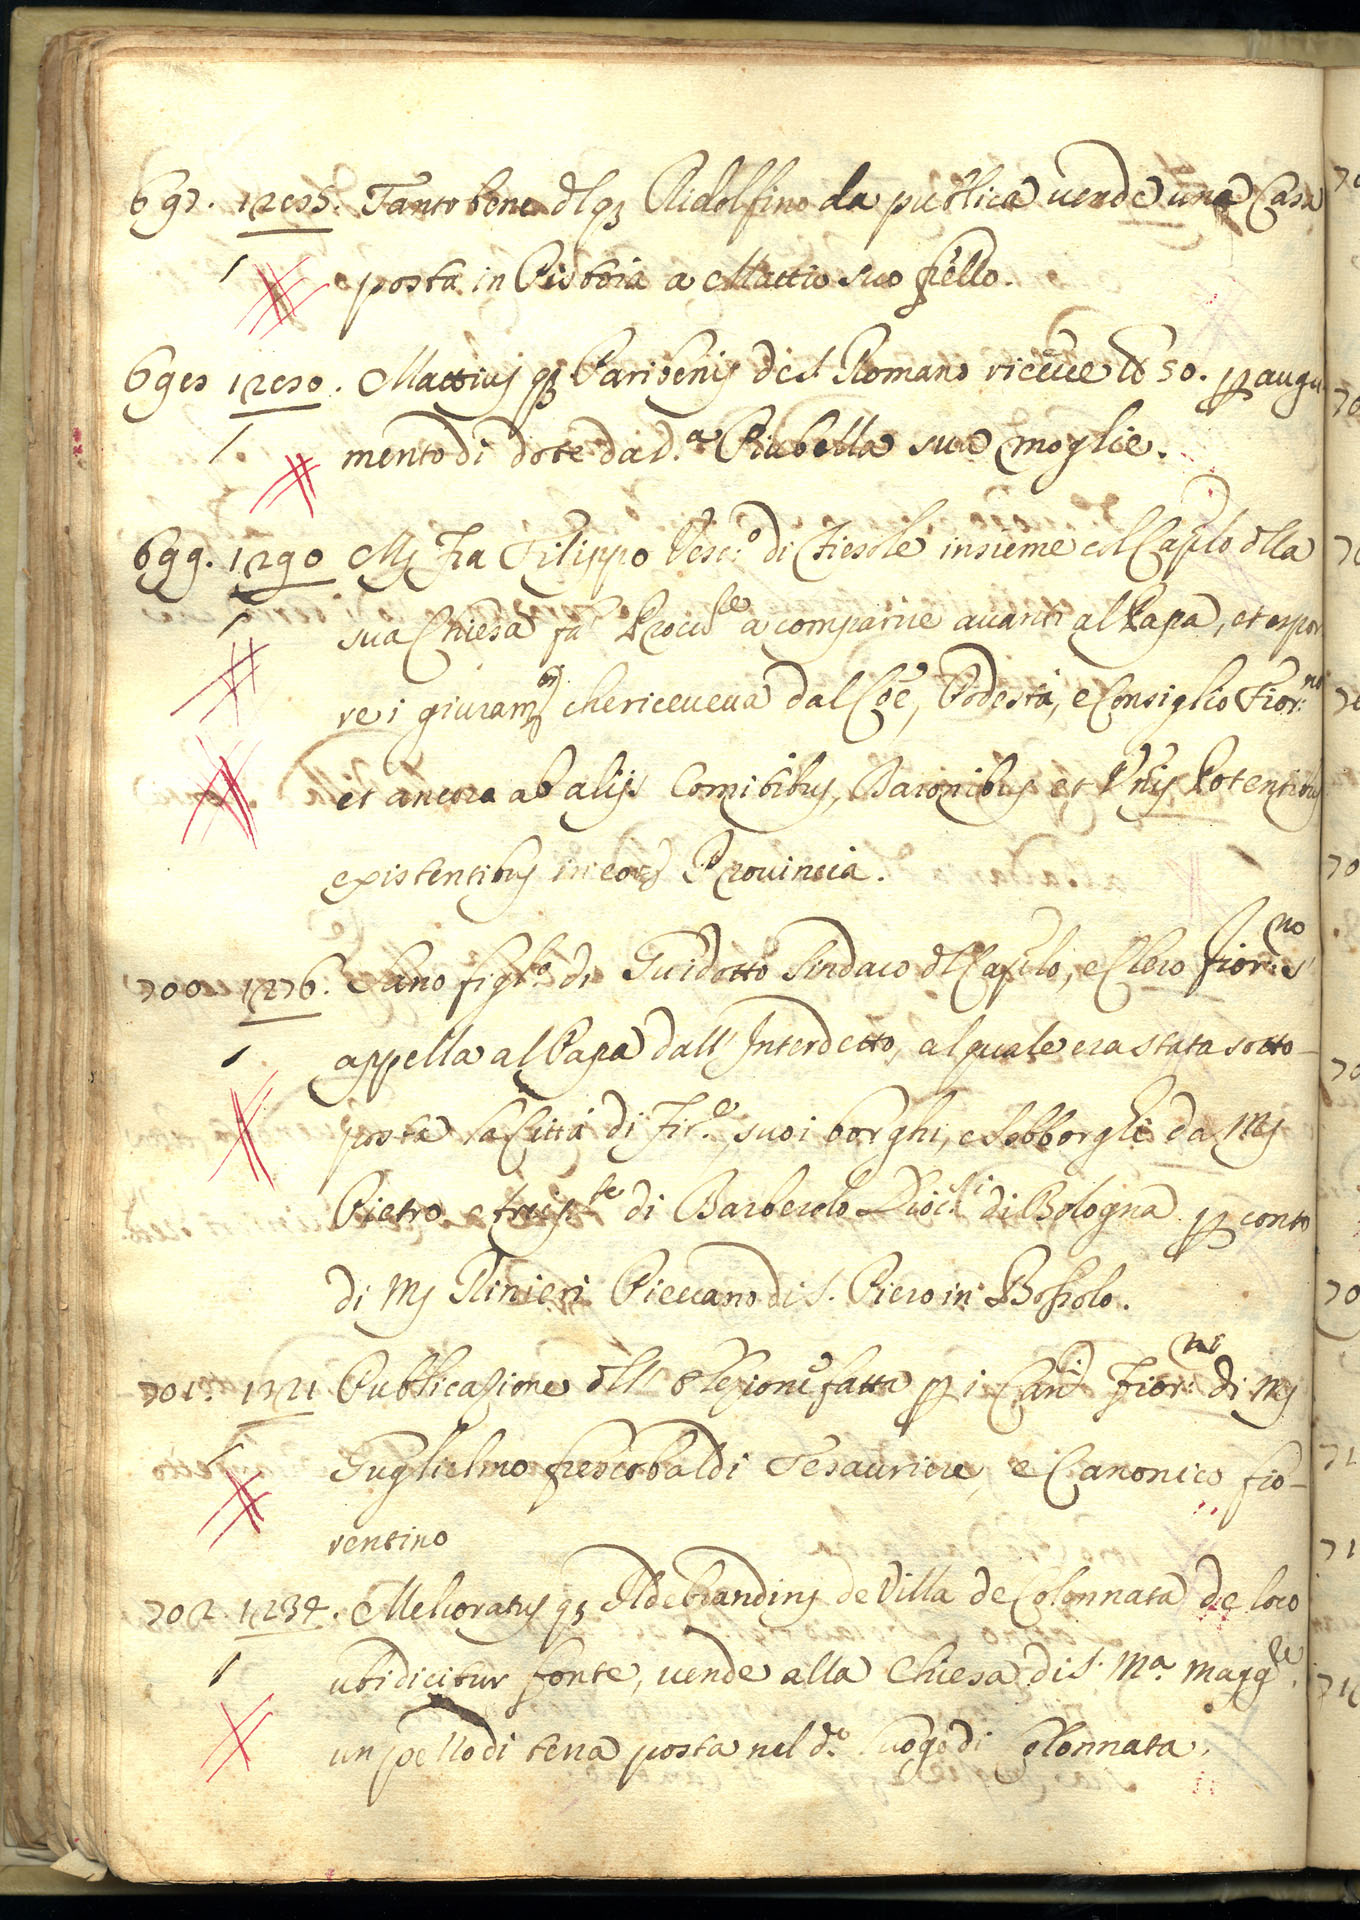 697. 1285. Tantobene dlq3 Ridolfino da publica vende una Casa
1 posta in Pistoia a Mattio suo frello.
698 1280. Mattius q3 Paribenis de S. Romano riceve lb 50. p augu
1. mento di dote da d.a Piubella sua moglie.
699. 1290 Ms Fra Filippo Vesc.o di Fiesole insieme col Caplo dlla
1 sua Chiesa fa Procur.e a comparire avanti al Papa, et espor
re i giuram.ti che riceveva dal Coe, Podestà, e Consiglio Fior:no
et ancora ab alijs Comitibus, Baronibus et Vris Potentibus
existentibus in eorum Provincia.
700 1276. Sano figl.o di Guidotto Sindaco dl Caplo, e Clero fior:no s'
1 appella al Papa dall' Interdetto, al quale era stata sotto-
posta la Città di Fir.e, suoi borghi, e Sobborghi da Ms
Pietro di Barberolo Dioc.si di Bologna p conto
di Ms Rinieri Pievano di S. Piero in Bossolo.
701. 1321 Publicazione dll' Elezione fatta p i Can.ci fior:ni di Ms
1 Guglielmo frescobaldi Tesauriere, e Canonico fio-
rentino
702. 1234. Melioratus q3 Ildebrandini de Villa de Colonnata de loco
1 ubi dicitur fonte, vende alla Chiesa di S. M.a Magg.re
un pezzo di terra posta nel d.o luogo di Colonnata.